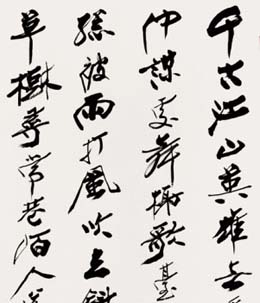 千古江山英雄无
仲謀處舞榭歌臺
總被雨打風吹去
草樹尋常巷陌人